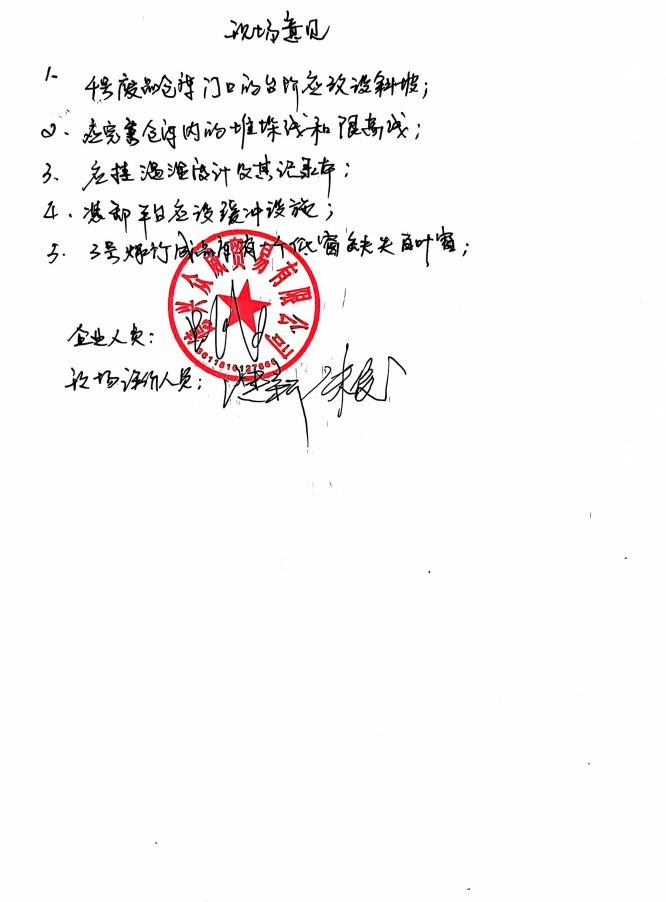 现场意见
1. 4号废品仓库门口的台阶应改设斜坡;
2. 应完善仓库内的堆垛线和限高线;
3. 应挂温湿度计及其记录本;
4. 装卸平台应设缓冲设施;
5. 3号爆竹成品库有一个低窗缺失百叶窗;
兴众威贸易有限公司
企业人员:
现场评价人员: